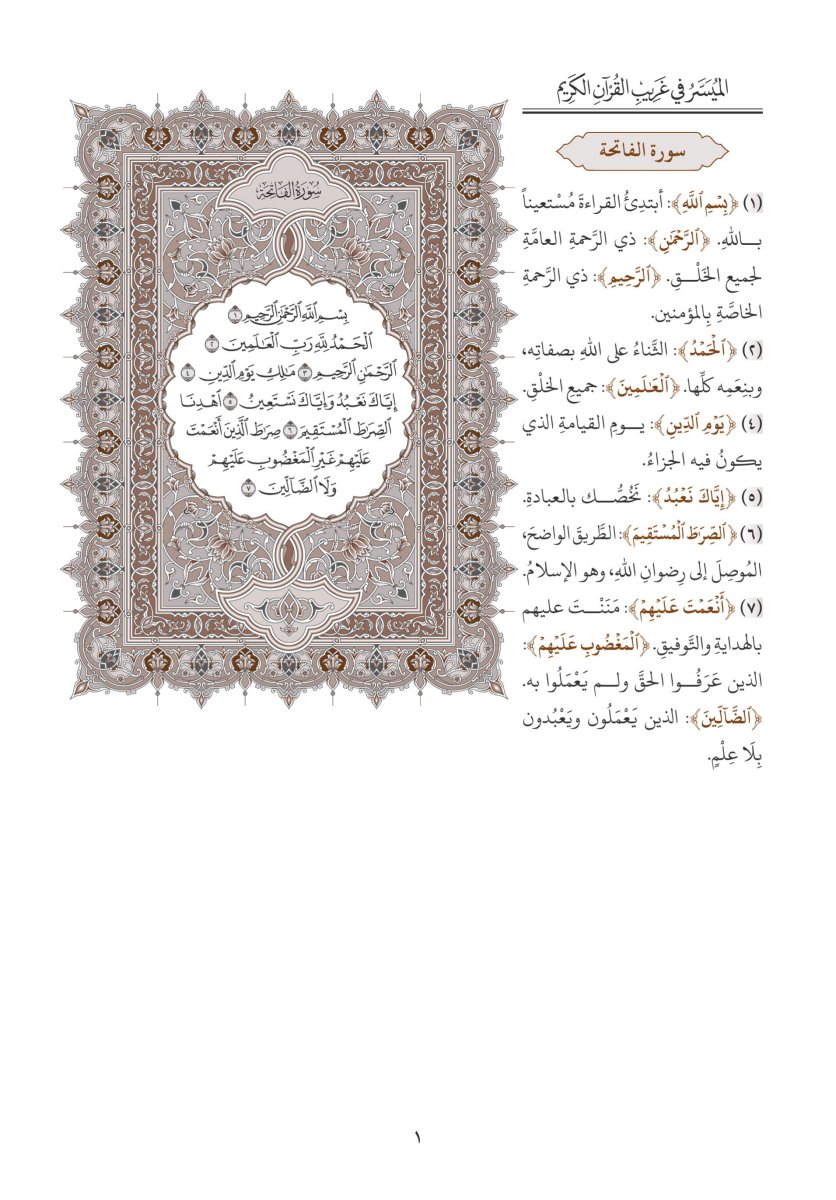 المُيَسَّرُ في غَرِيبِ القُرْآنِ الكَرِيم
سورة الفاتحة
(١) ﴿بِسْمِ ٱللَّهِ﴾: أبتدِئُ القراءةَ مُسْتعيناً
بـاللهِ. ﴿ٱلرَّحْمَٰنِ﴾: ذي الرَّحمةِ العامَّةِ
لجميع الخَلْـــقِ. ﴿ٱلرَّحِيمِ﴾: ذي الرَّحمةِ
الخاصَّةِ بِالمؤمنين.
(٢) ﴿ٱلْحَمْدُ﴾: الثَّناءُ على اللهِ بصفاتِه،
وبنِعَمِه كلِّها. ﴿ٱلْعَٰلَمِينَ﴾: جميعِ الخلْقِ.
(٤) ﴿يَوْمِ ٱلدِّينِ﴾: يــومِ القيامةِ الذي
يكونُ فيه الجزاءُ.
(٥) ﴿إِيَّاكَ نَعْبُدُ﴾: نَخُصُّـــك بالعبادةِ.
(٦) ﴿ٱلصِّرَٰطَ ٱلْمُسْتَقِيمَ﴾: الطَّريقَ الواضحَ،
المُوصِلَ إلى رِضوانِ اللهِ، وهو الإسلامُ.
(٧) ﴿أَنْعَمْتَ عَلَيْهِمْ﴾: مَنَنْــتَ عليهم
بالهدايةِ والتَّوفيقِ. ﴿ٱلْمَغْضُوبِ عَلَيْهِمْ﴾:
الذين عَرَفُــوا الحقَّ ولــم يَعْمَلُوا به.
﴿ٱلضَّآلِّينَ﴾: الذين يَعْمَلُون ويَعْبُدون
بِلَا عِلْمٍ.
سُورَةُ الفَاتِحَة
بِسْمِ ٱللَّهِ ٱلرَّحْمَٰنِ ٱلرَّحِيمِ ١
ٱلْحَمْدُ لِلَّهِ رَبِّ ٱلْعَٰلَمِينَ ٢
ٱلرَّحْمَٰنِ ٱلرَّحِيمِ ٣ مَٰلِكِ يَوْمِ ٱلدِّينِ ٤
إِيَّاكَ نَعْبُدُ وَإِيَّاكَ نَسْتَعِينُ ٥ ٱهْدِنَا
ٱلصِّرَٰطَ ٱلْمُسْتَقِيمَ ٦ صِرَٰطَ ٱلَّذِينَ أَنْعَمْتَ
عَلَيْهِمْ غَيْرِ ٱلْمَغْضُوبِ عَلَيْهِمْ
وَلَا ٱلضَّآلِّينَ ٧
١